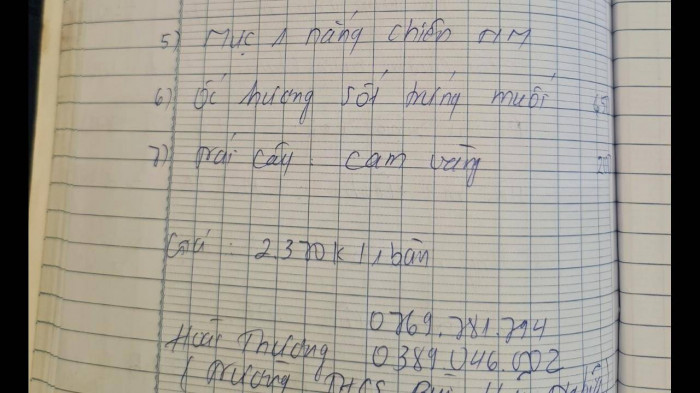 5) Mực 1 nắng chiên MM
6) Ốc hương sốt trứng muối
7) Trái cây : cam vàng
Giá : 2.370K 1 bàn
0769.781.794
Hoài Thương 0389.046.002
( Trương THCS